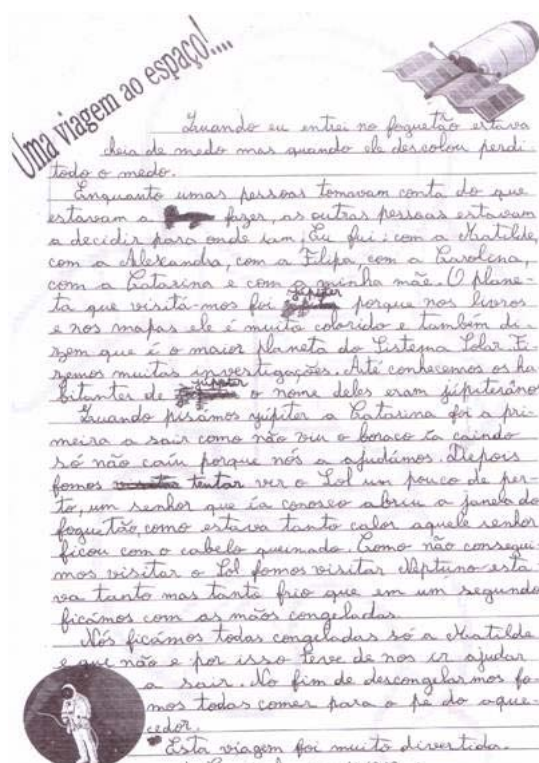 Uma viagem ao espaço!....
Quando eu entrei no foguetão estava
cheia de medo mas quando ele descolou perdi
todo o medo.
Enquanto umas pessoas tomavam conta do que
estavam a fazer, as outras pessoas estavam
a decidir para onde iam. Eu fui: com a Matilde,
com a Alexandra, com a Filipa, com a Carolina,
com a Catarina e com a minha mãe. O plane-
ta que visitá-mos foi júpiter porque nos livros
e nos mapas ele é muito colorido e também di-
zem que é o maior planeta do Sistema Solar. Fi-
zemos muitas investigações. Até conhecemos os ha-
bitantes de júpiter o nome deles eram júpiterános
Quando pisámos júpiter a Catarina foi a pri-
meira a sair como não viu o boraco ía caindo
só não caíu porque nós a ajudámos. Depois
fomos tentar ver o Sol um pouco de per-
to, um senhor que ía conosco abriu a janela do
foguetão, como estava tanto calor aquele senhor
ficou com o cabelo queimado. Como não consegui-
mos visitar o Sol fomos visitar Neptuno esta-
va tanto mas tanto frio que em um segundo
ficámos com as mãos congeladas.
Nós ficámos todas congeladas só a Matilde
é que não e por isso teve de nos ir ajudar
a sair. No fim de descongelarmos fo-
mos todas comer para o pé do aque-
cedor.
Esta viagem foi muito divertida.